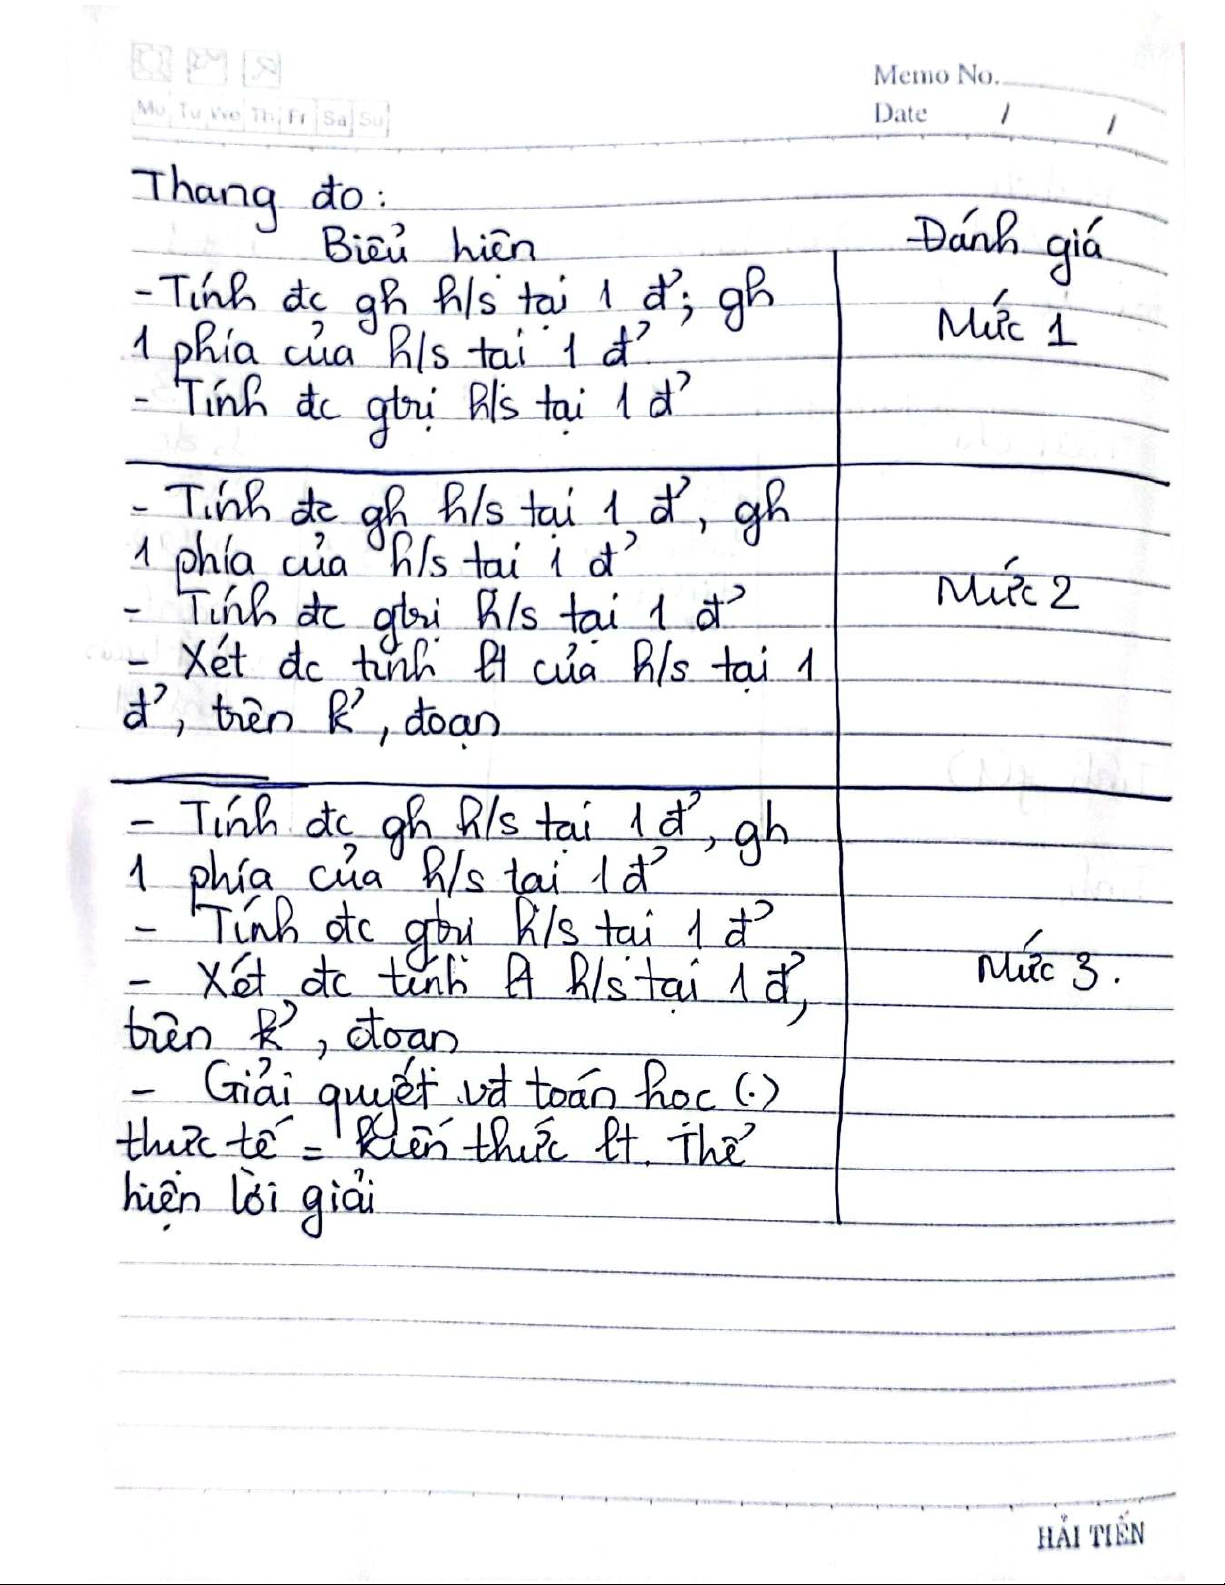 Memo No.
Mo Tu We Th Fr Sa Su
Date / /
Thang đo:
Biểu hiện
Đánh giá
- Tính đc gh h/s tại 1 đ̉; gh
1 phía của h/s tại 1 đ̉
- Tính đc gtrị h/s tại 1 đ̉
Mức 1
- Tính đc gh h/s tại 1 đ̉, gh
1 phía của h/s tại 1 đ̉
- Tính đc gtrị h/s tại 1 đ̉
- Xét đc tính lt của h/s tại 1
đ̉, trên k̉, đoạn
Mức 2
- Tính đc gh h/s tại 1 đ̉, gh
1 phía của h/s tại 1 đ̉
- Tính đc gtrị h/s tại 1 đ̉
- Xét đc tính lt h/s tại 1 đ̉,
trên k̉, đoạn
- Giải quyết vđ toán học (.)
thực tế = kiến thức lt. Thể
hiện lời giải
Mức 3.
HẢI TIẾN